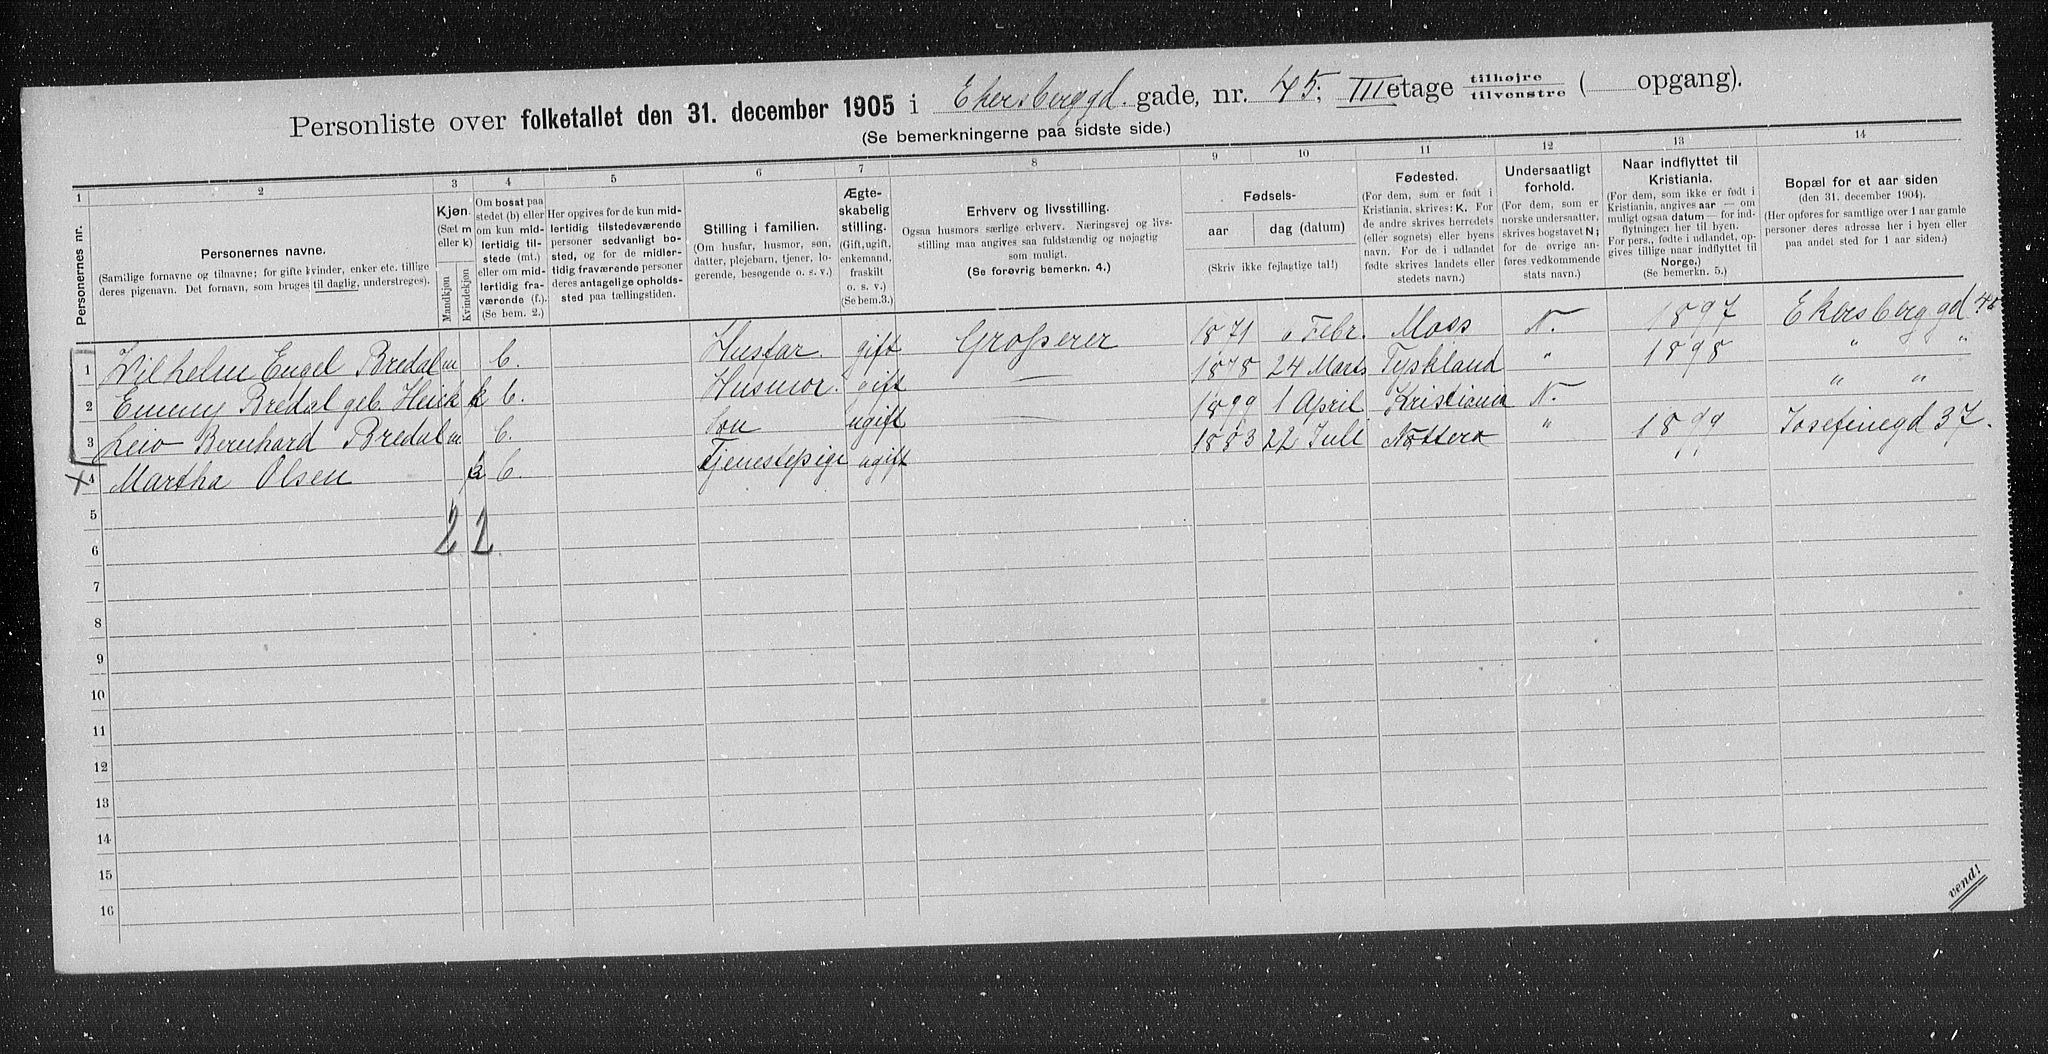 Personliste over folketallet den 31. december 1905 i Ekersberggd. gade, nr. 45; III etage tilhøjre tilvenstre ( opgang).
(Se bemerkningerne paa sidste side.)
1 2 3 4 5 6 7 8 9 10 11 12 13 14
Personernes nr.
Personernes navne.
(Samtlige fornavne og tilnavne; for gifte kvinder, enker etc. tillige
deres pigenavn. Det fornavn, som bruges til daglig, understreges).
Kjøn.
(Sæt m
eller k)
Mandkjøn
Kvindekjøn.
Om bosat paa
stedet (b) eller
om kun mid-
lertidig til-
stede (mt.)
eller om mid-
lertidig fra-
værende (f.).
(Se bem. 2.)
Her opgives for de kun mid-
lertidig tilstedeværende
personer sedvanlig bo-
sted, og for de midler-
tidig fraværende personer
deres antagelige opholds-
sted paa tællingstiden.
Stilling i familien.
(Om husfar, husmor, søn,
datter, plejebarn, tjener, lo-
gerende, besøgende o. s. v.)
Ægte-
skabelig
stilling.
(Gift, ugift,
enkemand,
fraskilt
o. s. v.)
(Se bem.3.)
Erhverv og livsstilling.
Ogsaa husmors særlige erhverv. Næringsvej og livs-
stilling maa angives saa fuldstændig og nøjagtig
som muligt.
(Se forøvrig bemerkn. 4.)
Fødsels-
aar dag (datum)
(Skriv ikke fejlagtige tal!)
Fødested.
(For dem, som er født i
Kristiania, skrives: K. For
de andre skrives herredets
(eller sognets) eller byens
navn. For de i udlandet
fødte skrives landets eller
stedets navn.)
Undersaatligt
forhold.
(For dem, som er
norske undersaatter,
skrives bogstavet N;
for de øvrige an-
føres vedkommende
stats navn.)
Naar indflyttet til
Kristiania.
(For dem, som ikke er født i
Kristiania, angives aar — om
muligt ogsaa datum — for ind-
flytningen her til byen.
For pers., fødte i udlandet, op-
gives tillige naar indflyttet til
Norge.)
(Se bemerkn. 5.)
Bopæl for et aar siden
(den 31. december 1904).
(Her opføres for samtlige over 1 aar gamle
personer deres adresse her i byen eller
paa andet sted for 1 aar siden.)
1 Wilhelm Engel Bredal m b. Husfar. gift Grosserer 1871 Febr. Moss N. 1897 Ekersberggd 45
2 Emmy Bredal geb. Heick k b. Husmor. gift — 1878 24 Marts Tyskland " 1898 " "
3 Leio Bernhard Bredal m b. Søn ugift — 1899 1 April Kristiania N. " "
4 Martha Olsen k b. Tjenestepige ugift 1883 22 Juli Nøtterø " 1899 Josefinegd 37.
5
2 2
6
7
8
9
10
11
12
13
14
15
16
vend!